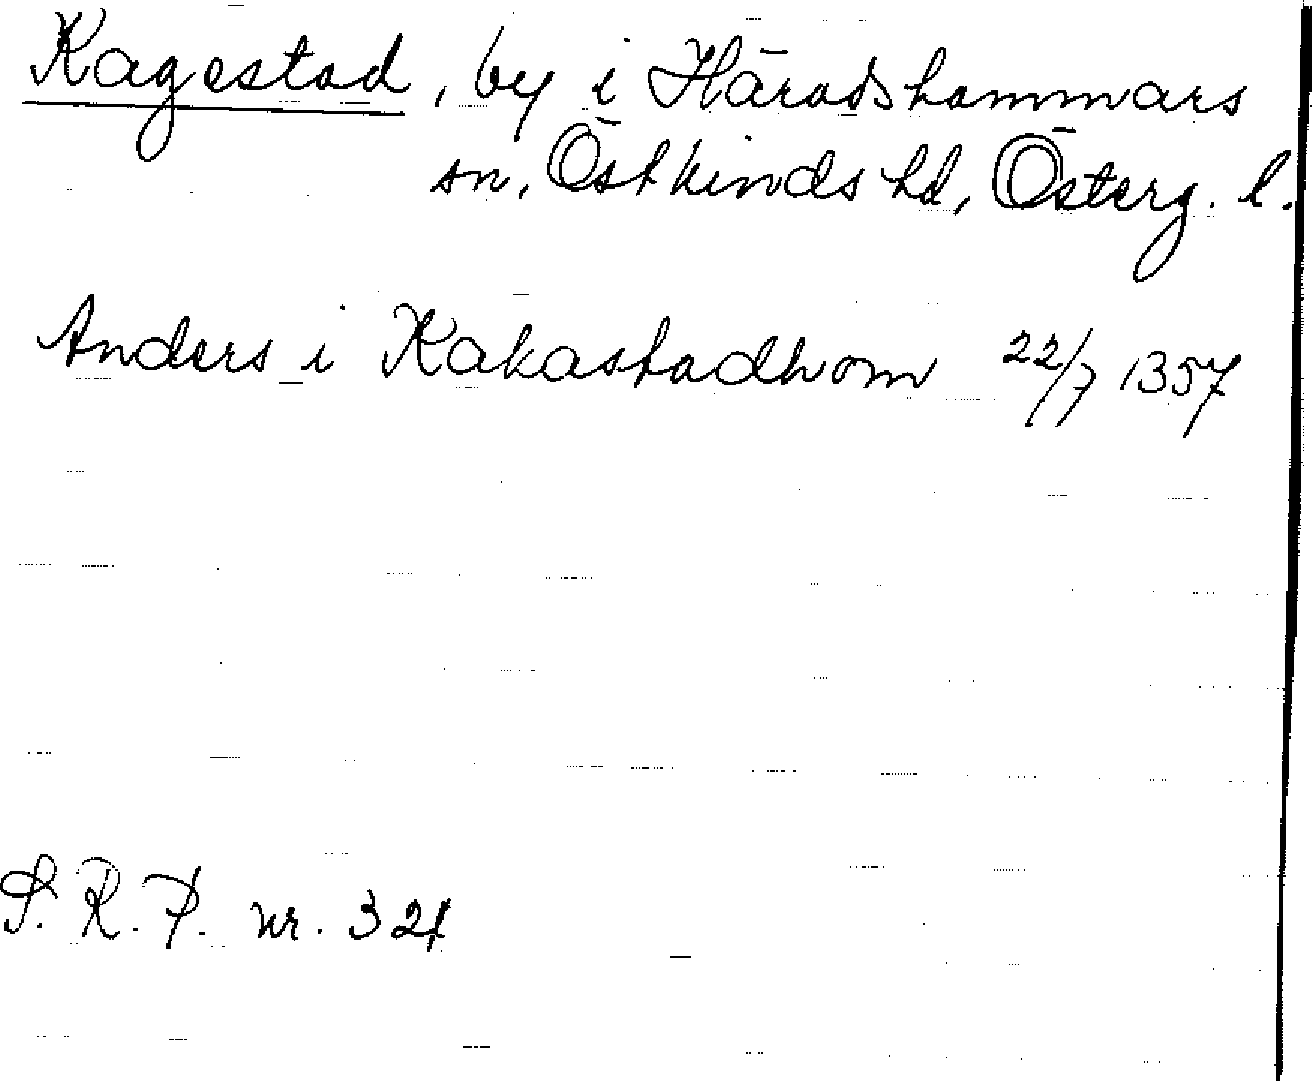 Kagestad, by i Häradshammars
sn, Östkinds hd, Österg. l.
Anders i Kakastadhom 22/7 1357
S. R. P. nr. 321